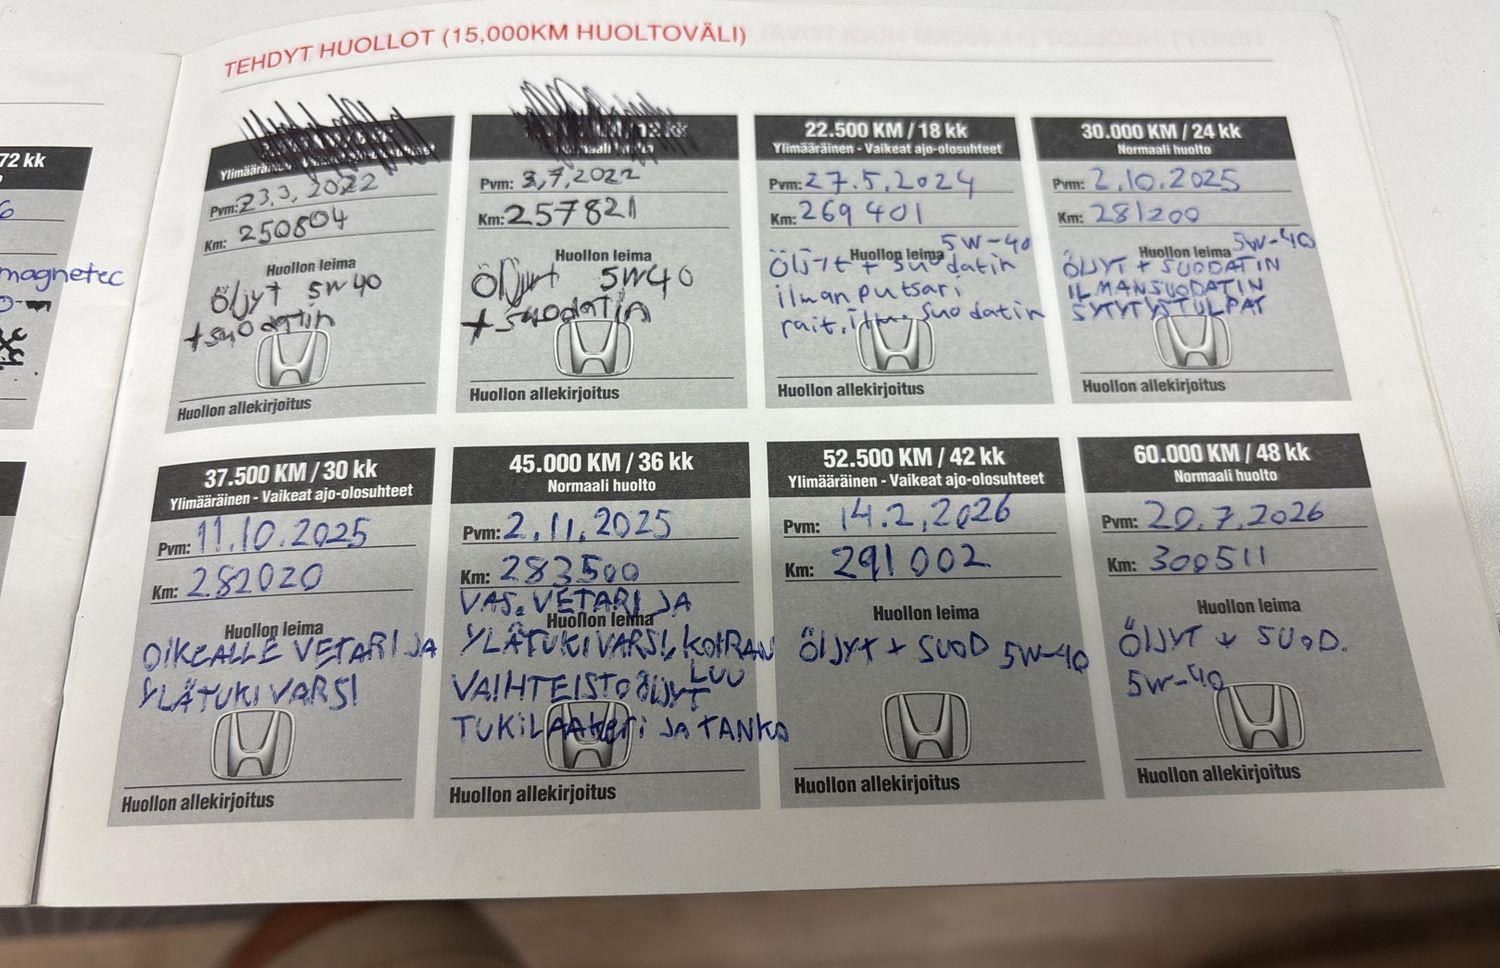 TEHDYT HUOLLOT (15,000KM HUOLTOVÄLI)
72 kk
6
magnetec
Pvm: 23.3.2022
Km: 250804
Huollon leima
Öljyt 5W40
+suodatin
Huollon allekirjoitus
Pvm: 3.7.2022
Km: 257821
Huollon leima
Öljyt 5W40
+suodatin
Huollon allekirjoitus
22.500 KM / 18 kk
Ylimääräinen - Vaikeat ajo-olosuhteet
Pvm: 27.5.2024
Km: 269401
Huollon leima 5W-40
Öljyt + suodatin
ilman putsari
rait. ilm. suodatin
Huollon allekirjoitus
30.000 KM / 24 kk
Normaali huolto
Pvm: 2.10.2025
Km: 281200
Huollon leima 5W-40
ÖLJYT + SUODATIN
ILMANSUODATIN
SYTYTYSTULPAT
Huollon allekirjoitus
37.500 KM / 30 kk
Ylimääräinen - Vaikeat ajo-olosuhteet
Pvm: 11.10.2025
Km: 282020
Huollon leima
OIKEALLE VETARI JA
YLÄTUKIVARSI
Huollon allekirjoitus
45.000 KM / 36 kk
Normaali huolto
Pvm: 2.11.2025
Km: 283500
VAS. VETARI JA
Huollon leima
YLÄTUKIVARSI, KOIRAN
LUU
VAIHTEISTOÖLJYT
TUKILAAKERI JA TANKO
Huollon allekirjoitus
52.500 KM / 42 kk
Ylimääräinen - Vaikeat ajo-olosuhteet
Pvm: 14.2.2026
Km: 291002
Huollon leima
ÖLJYT + SUOD 5W-40
Huollon allekirjoitus
60.000 KM / 48 kk
Normaali huolto
Pvm: 20.7.2026
Km: 300511
Huollon leima
ÖLJYT + SUOD.
5W-40
Huollon allekirjoitus